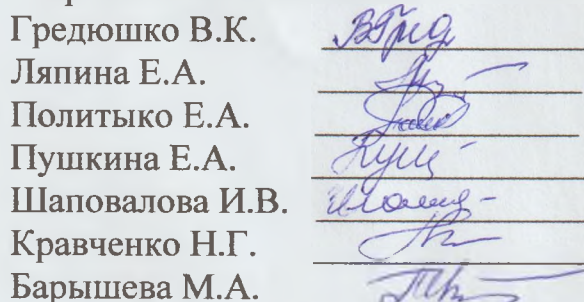 Гредюшко В.К.
Ляпина Е.А.
Политыко Е.А.
Пушкина Е.А.
Шаповалова И.В.
Кравченко Н.Г.
Барышева М.А.